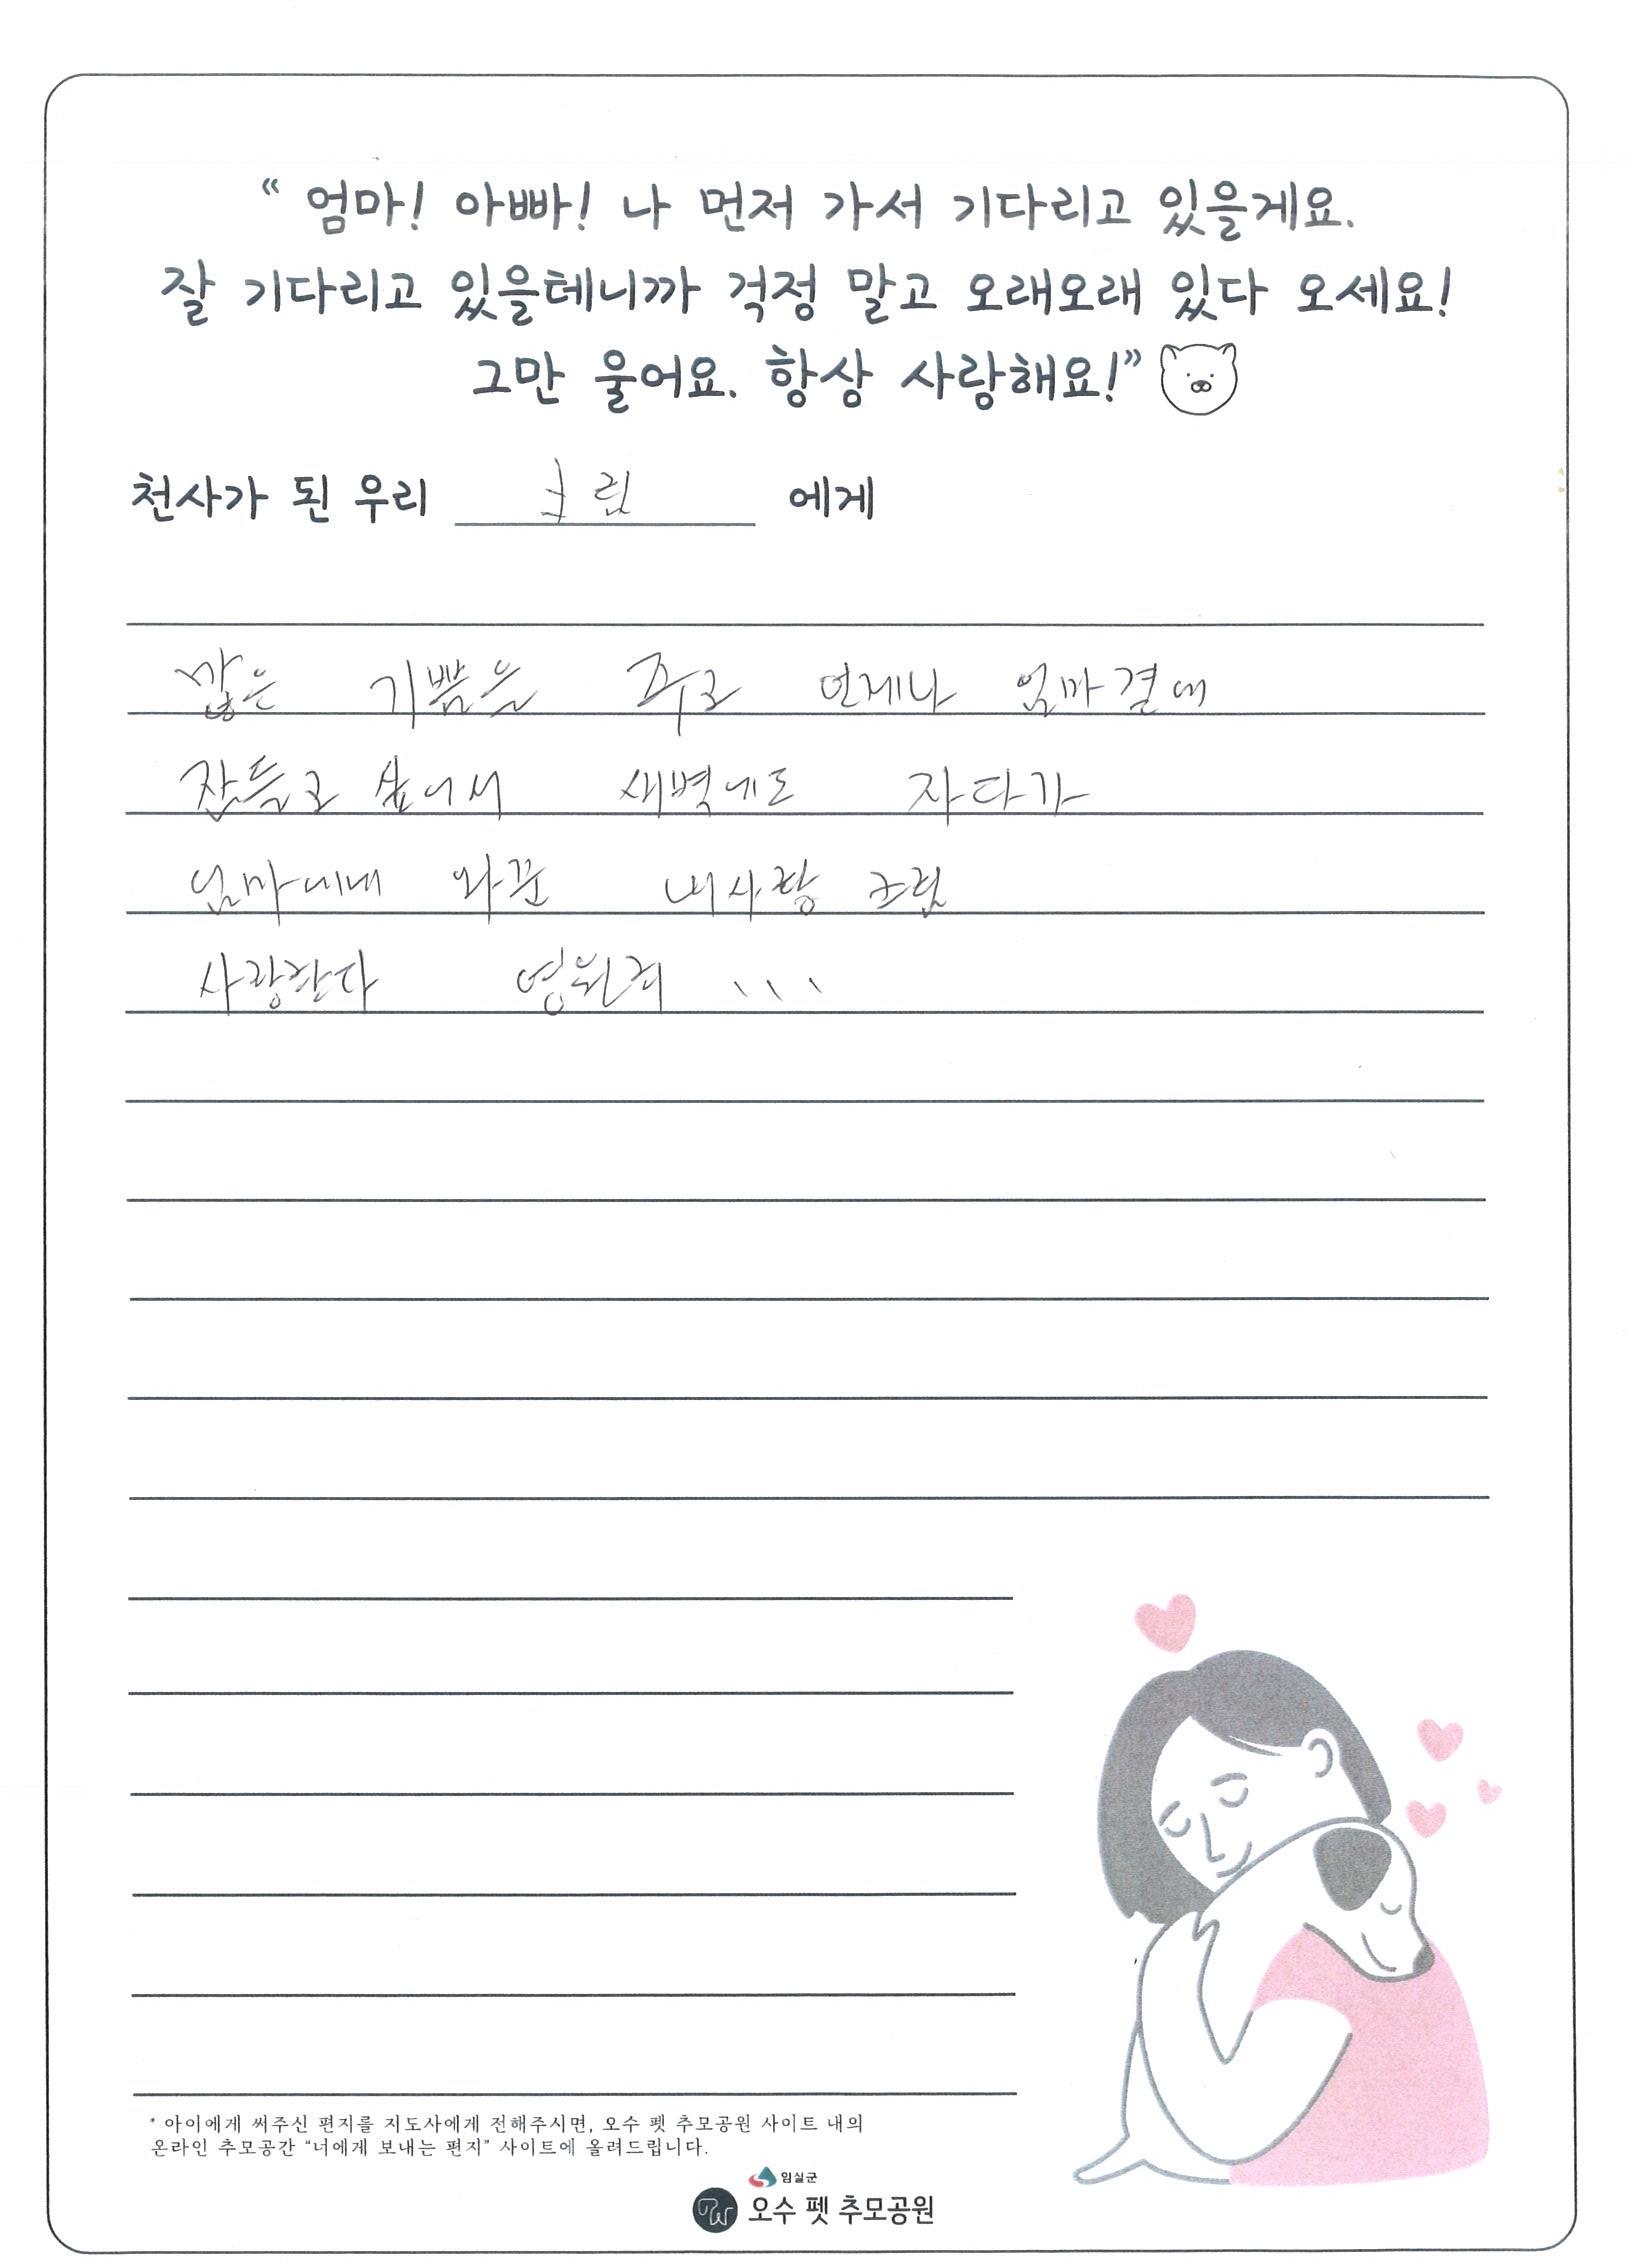 “ 엄마! 아빠! 나 먼저 가서 기다리고 있을게요.
잘 기다리고 있을테니까 걱정 말고 오래오래 있다 오세요!
그만 울어요. 항상 사랑해요!”
천사가 된 우리 크림 에게
많은 기쁨을 주고 언제나 엄마곁에
잠들고 싶어서 새벽에도 자다가
엄마에게 와준 내사랑 크림
사랑한다 영원히 ...
* 아이에게 써주신 편지를 지도사에게 전해주시면, 오수 펫 추모공원 사이트 내의
온라인 추모공간 “너에게 보내는 편지” 사이트에 올려드립니다.
임실군
오수 펫 추모공원